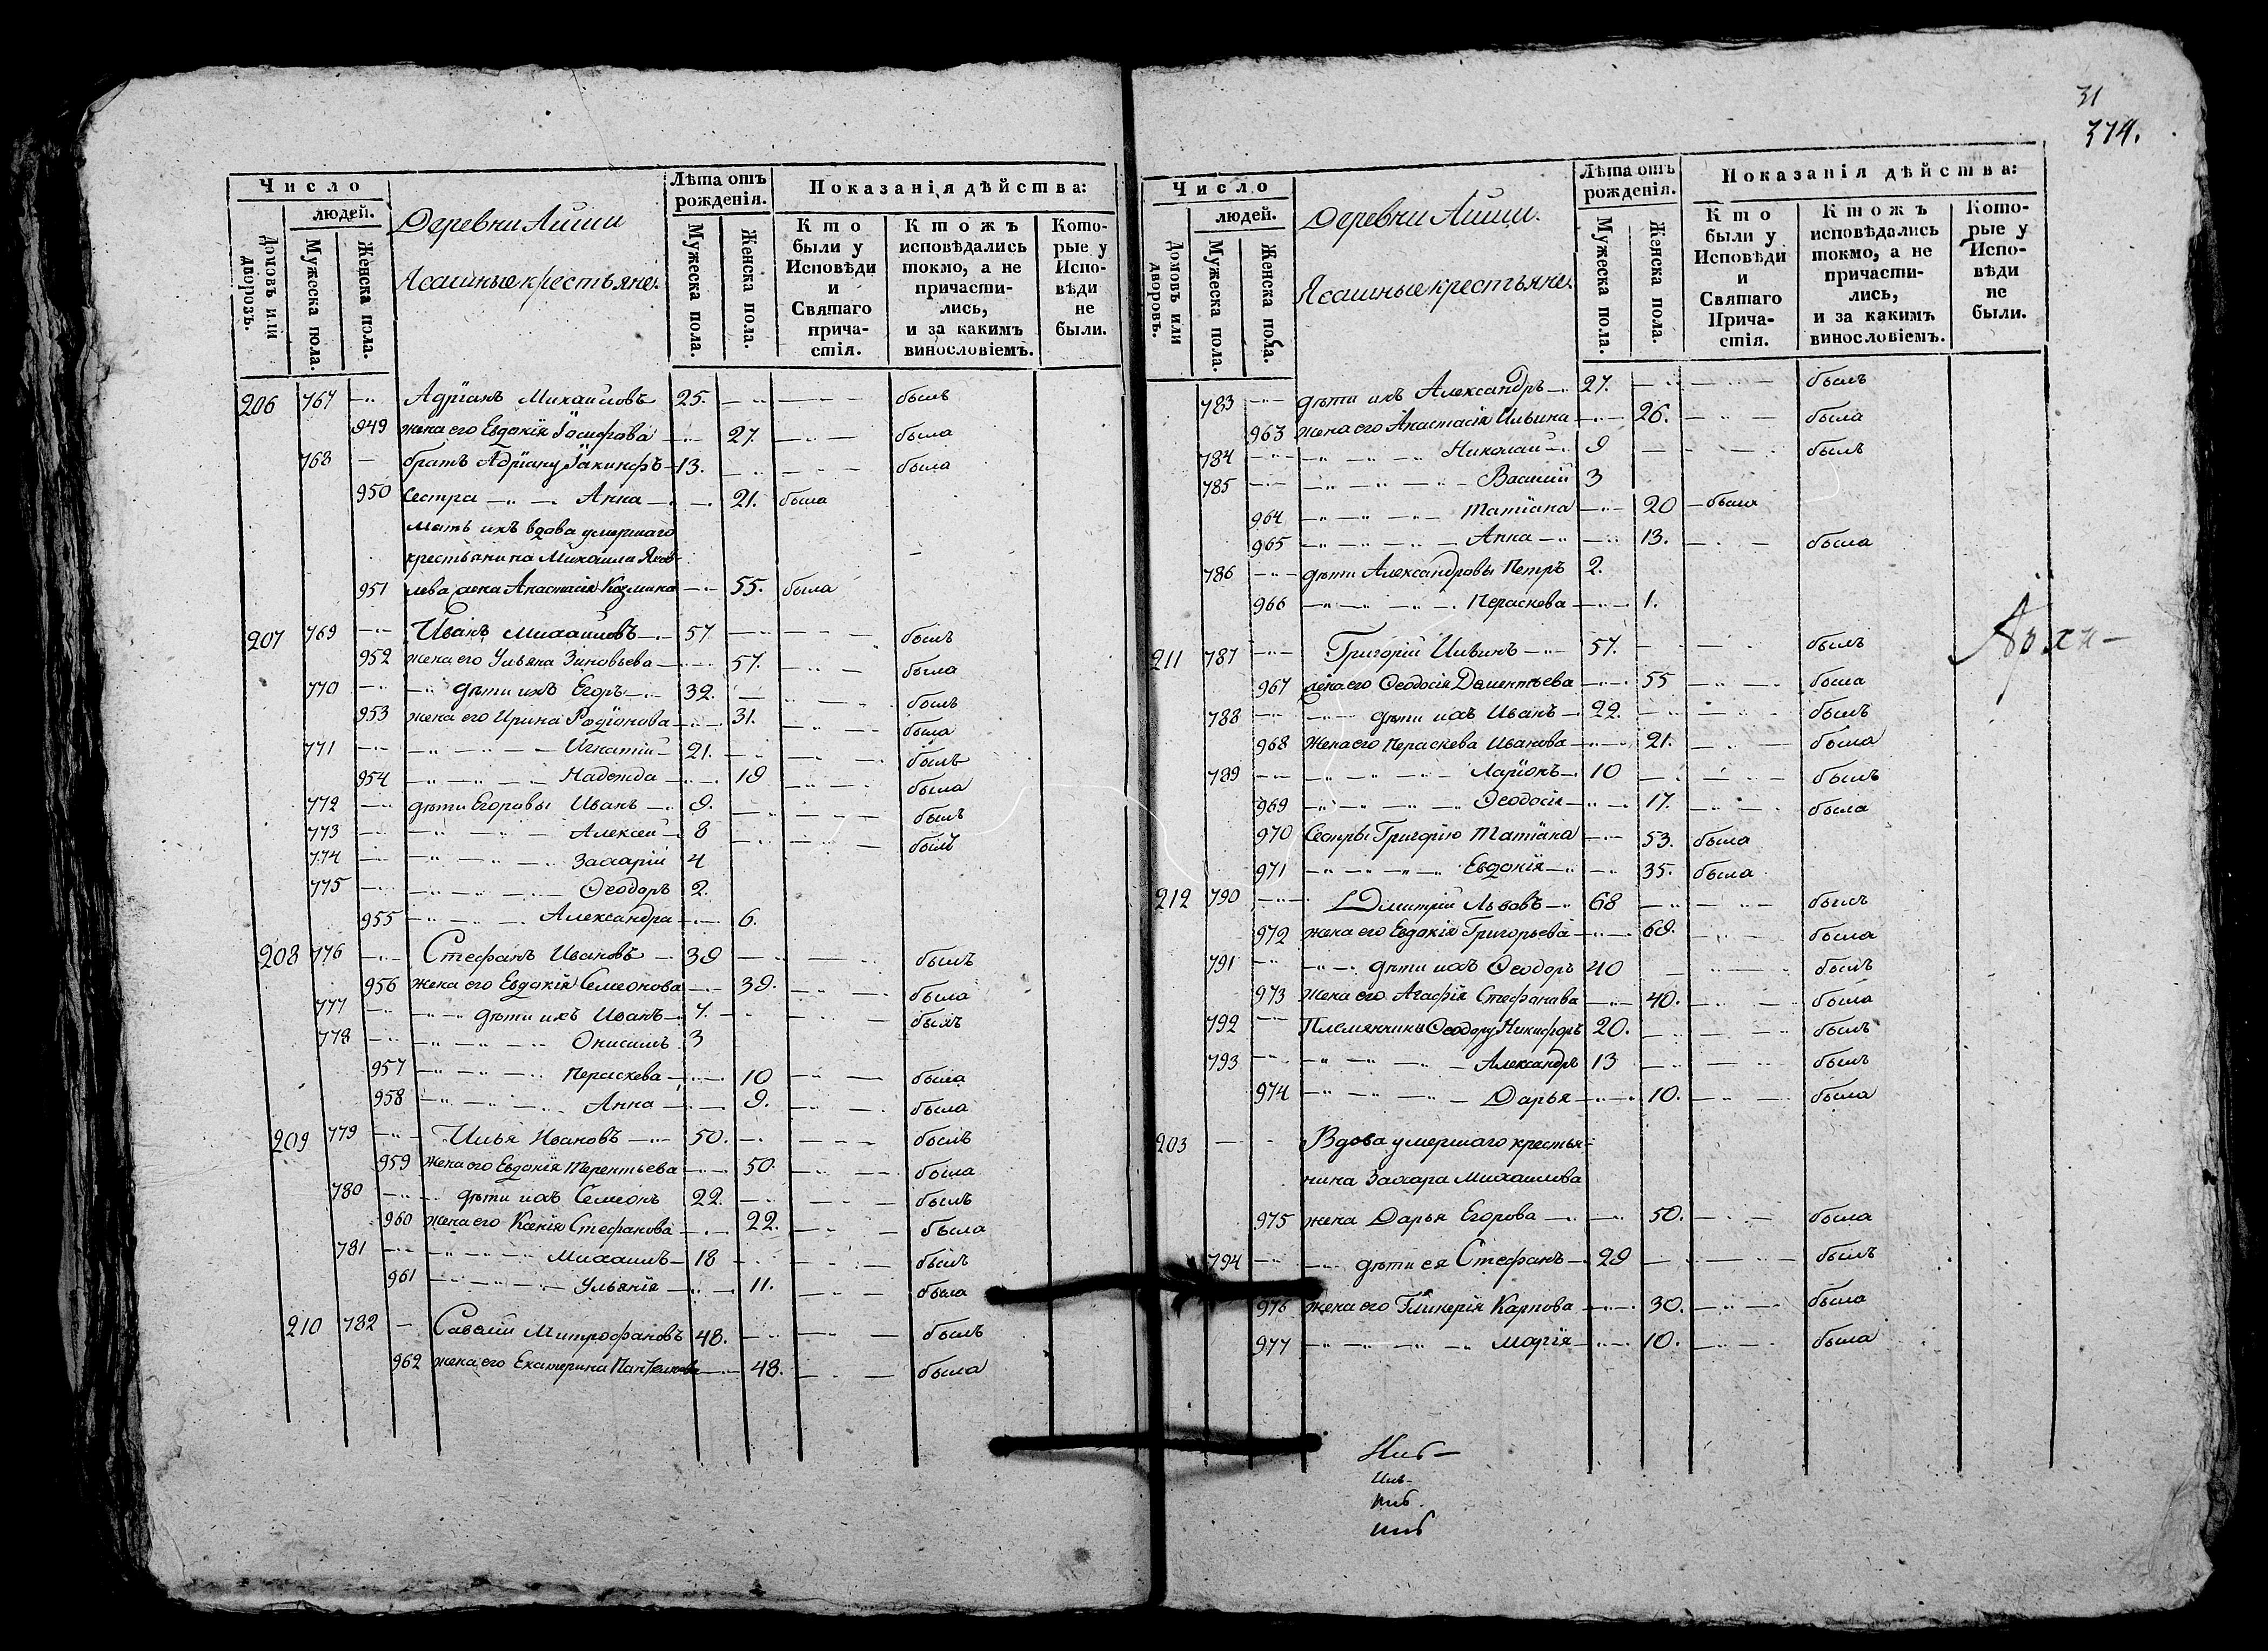 31
374.
Число
людей.
Домовъ или дворовъ.
Мужеска пола.
Женска пола.
Деревни Аиши
Ясашные крестьяне.
Лѣта отъ рожденія.
Мужеска пола.
Женска пола.
Показанія дѣйства:
Кто были у Исповѣди и Святаго причастія.
Ктожъ исповѣдались токмо, а не причастились, и за какимъ винословіемъ.
Которые у Исповѣди не были.
206 767 Адрїанъ Михаиловъ 25. былъ
949 жена его Евдокїя Іосифова 27. была
768 братъ Адрїану Їакинфъ 13. была
950 Сестра Анна 21. была
мать ихъ вдова умершаго
крестьянина Михаила Яков-
951 лева жена Анастасія Козмина 55. была
207 769 Иванъ Михаиловъ 57 былъ
952 жена его Ульяна Зиновьева 57. была
770 дѣти ихъ Егоръ 32. былъ
953 жена его Ирина Родїонова 31. была
771 Игнатій 21. былъ
954 Надежда 19 была
772 дѣти Егоровы Иванъ 9. былъ
773 Алексей 8 былъ
774 Захарій 4
775 Ѳеодоръ 2.
955 Александра 6.
208 776 Стефанъ Ивановъ 39 былъ
956 жена его Евдокїя Семеонова 39. была
777 дѣти ихъ Иванъ 7. былъ
778 Онисимъ 3
957 Пераскева 10 была
958 Анна 9. была
209 779 Илья Ивановъ 50. былъ
959 жена его Евдокїя Терентьева 50. была
780 дѣти ихъ Семеонъ 22. былъ
960 жена его Ксенїя Стефанова 22. была
781 Михаилъ 18 былъ
961 Ульянїя 11. была
210 782 Савелій Митрофановъ 48. былъ
962 жена его Екатерина 48. была
Число
людей.
Домовъ или дворовъ.
Мужеска пола.
Женска пола.
Деревни Аиши.
Ясашные крестьяне.
Лѣта отъ рожденія.
Мужеска пола.
Женска пола.
Показанія дѣйства:
Кто были у Исповѣди и Святаго Причастія.
Ктожъ исповѣдались токмо, а не причастились, и за какимъ винословіемъ.
Которые у Исповѣди не были.
783 дѣти ихъ Александръ 27. былъ
963 жена его Анастасія Ильина 26. была
784 Николай 9 былъ
785 Василій 3
964 Татїана 20 была
965 Анна 13. была
786 дѣти Александровы Петръ 2.
966 Пераскева 1.
211 787 Григорій Ильинъ 57. былъ
967 жена его Ѳеодосія Дементьева 55 была
788 дѣти ихъ Иванъ 22. былъ
968 Жена его Пераскева Иванова 21. была
789 Ларїонъ 10 былъ
969 Ѳеодосія 17. была
970 Сестры Григорію Татїана 53. была
971 Евдокїя 35. была
212 790 Димитрій Львовъ 68 былъ
972 жена его Евдокїя Григорьева 69. была
791 дѣти ихъ Ѳеодоръ 40 былъ
973 жена его Агафїя Стефанова 40. была
792 Племянники Ѳеодору Никифоръ 20. былъ
793 Александръ 13 былъ
974 Дарья 10. была
203 Вдова умершаго крестья-
нина Захара Михаилова
975 жена Дарья Егорова 50. была
794 дѣти ея Стефанъ 29 былъ
976 жена его Гликерїя Карпова 30. была
977 Марїя 10. была
Архи-